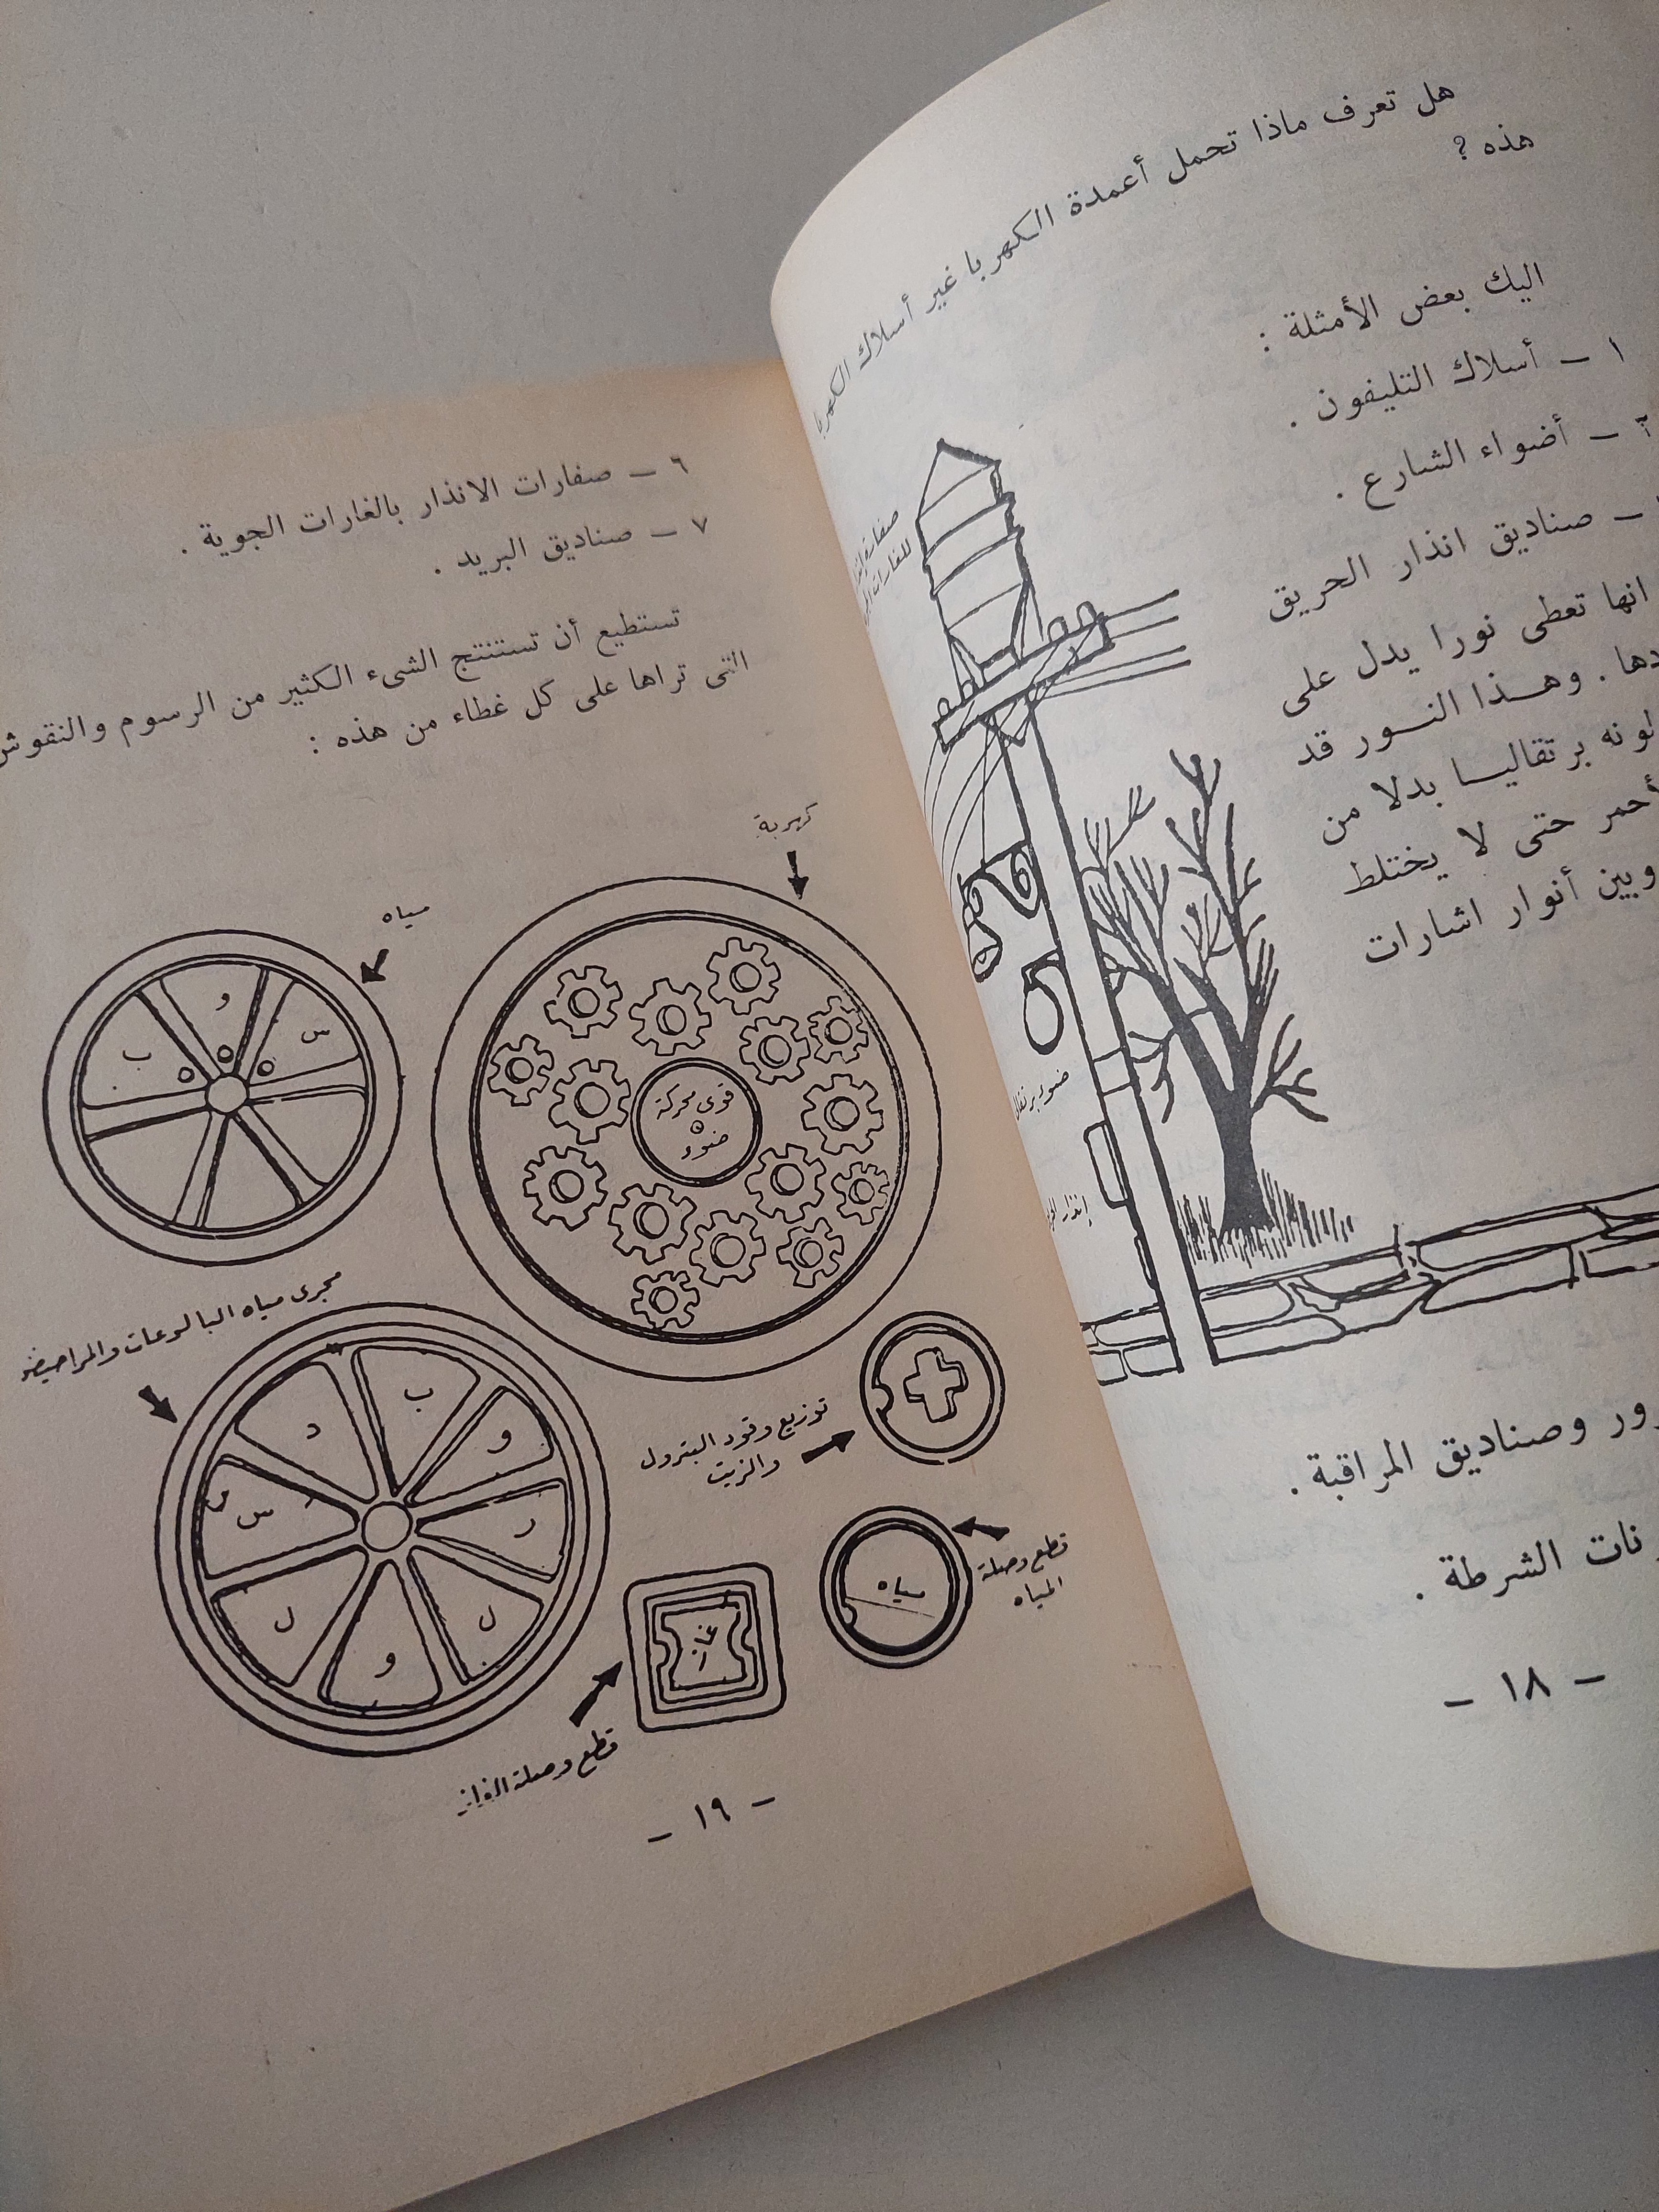 هل تعرف ماذا تحمل أعمدة الكهربا غير أسلاك الكهربا
هذه ؟
اليك بعض الأمثلة :
١ — أسلاك التليفون .
— أضواء الشارع .
— صناديق انذار الحريق
انها تعطى نورا يدل على
وهذا النور قد
لونه برتقاليا بدلا من
حتى لا يختلط
وبين أنوار اشارات
وصناديق المراقبة .
الشرطة .
صفارة
للغارات
ضوء
إنذار
— ١٨ —
٦ — صفارات الانذار بالغارات الجوية .
٧ — صناديق البريد .
تستطيع أن تستنتج الشىء الكثير من الرسوم والنقوش
التى تراها على كل غطاء من هذه :
كهربة
مياه
و
س
ب
قوى محركة
ضوء
مجرى مياه البالوعات والمراحيض
ب
د
و
س
ر
ل
ل
و
توزيع وقود البترول
والزيت
قطع وصلة
المياه
مياه
غاز
قطع وصلة الغاز
— ١٩ —